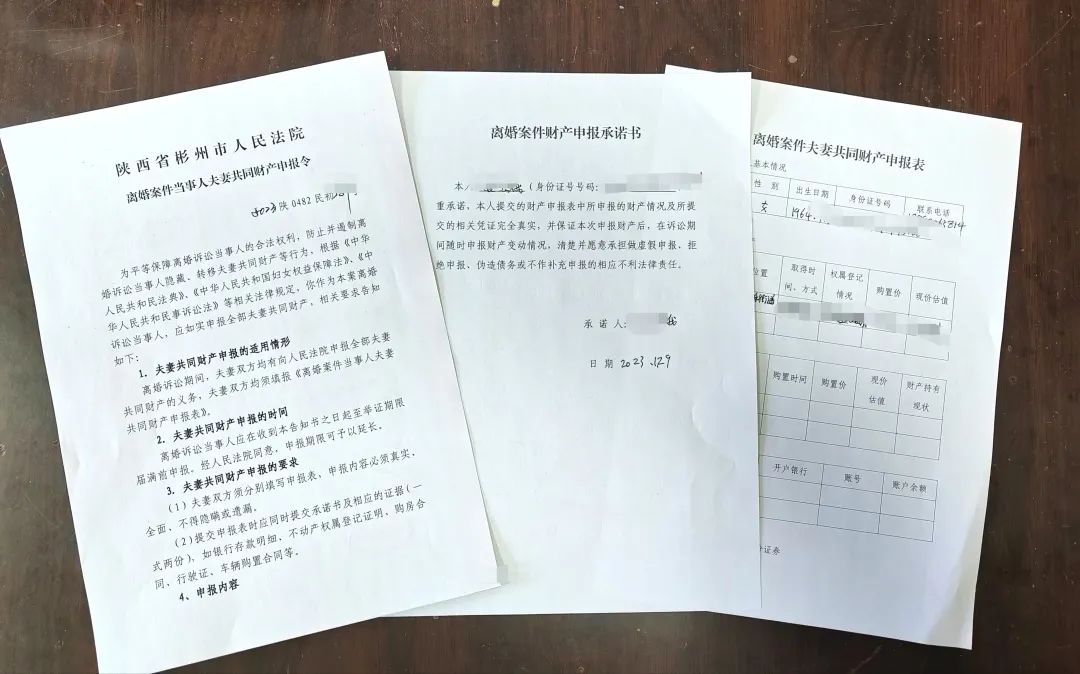 陕西省彬州市人民法院
离婚案件当事人夫妻共同财产申报令
2023陕0482民初
为平等保障离婚诉讼当事人的合法权利，防止并遏制离
婚诉讼当事人隐藏、转移夫妻共同财产等行为，根据《中华
人民共和民法典》、《中华人民共和国妇女权益保障法》、《中
华人民共和民事诉讼法》等相关法律规定，你作为本案离婚
诉讼当事人，应如实申报全部夫妻共同财产，相关要求告知
如下：
1．夫妻共同财产申报的适用情形
离婚诉讼期间，夫妻双方均有向人民法院申报全部夫妻
共同财产的义务，夫妻双方均须填报《离婚案件当事人夫妻
共同财产申报表》。
2．夫妻共同财产申报的时间
离婚诉讼当事人应在收到本告知书之日起至举证期限
届满前申报。经人民法院同意，申报期限可予以延长。
3．夫妻共同财产申报的要求
（1）夫妻双方须分别填写申报表，申报内容必须真实、
全面、不得隐瞒或遗漏。
（2）提交申报表时应同时提交承诺书及相应的证据（一
式两份），如银行存款明细、不动产权属登记证明、购房合
同、行驶证、车辆购置合同等。
4、申报内容
离婚案件财产申报承诺书
本人 （身份证号号码：
重承诺，本人提交的财产申报表中所申报的财产情况及所提
交的相关凭证完全真实，并保证本次申报财产后，在诉讼期
间随时申报财产变动情况，清楚并愿意承担做虚假申报、拒
绝申报、伪造债务或不作补充申报的相应不利法律责任。
承诺人：
日期 2023.129
离婚案件夫妻共同财产申报表
基本情况
性别 出生日期 身份证号码 联系电话
女 1964.
位置 取得时间、方式 权属登记情况 购置价 现价估值
购置时间 购置价 现价估值 财产持有现状
开户银行 账号 账户余额
证券